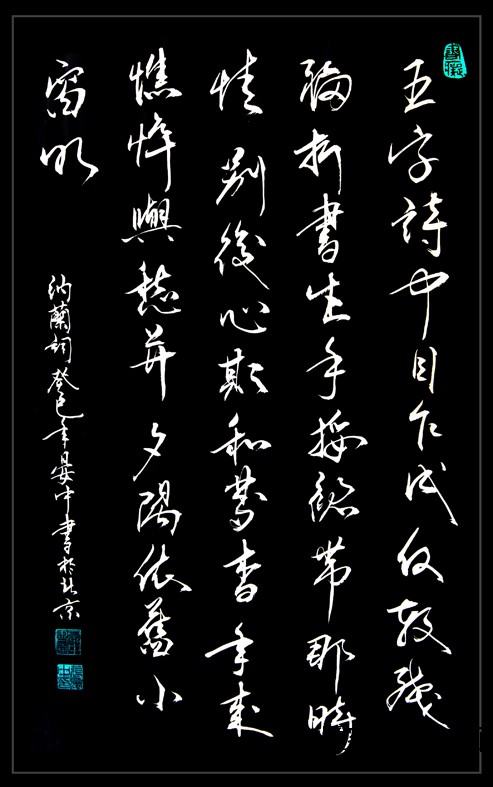 五字詩中目乍成仅教殘
福折書生手挼裙帶那時
情別後心期和夢杳年來
憔悴與愁并夕陽依舊小
窗明
納蘭詞癸巳年晏中書於北京